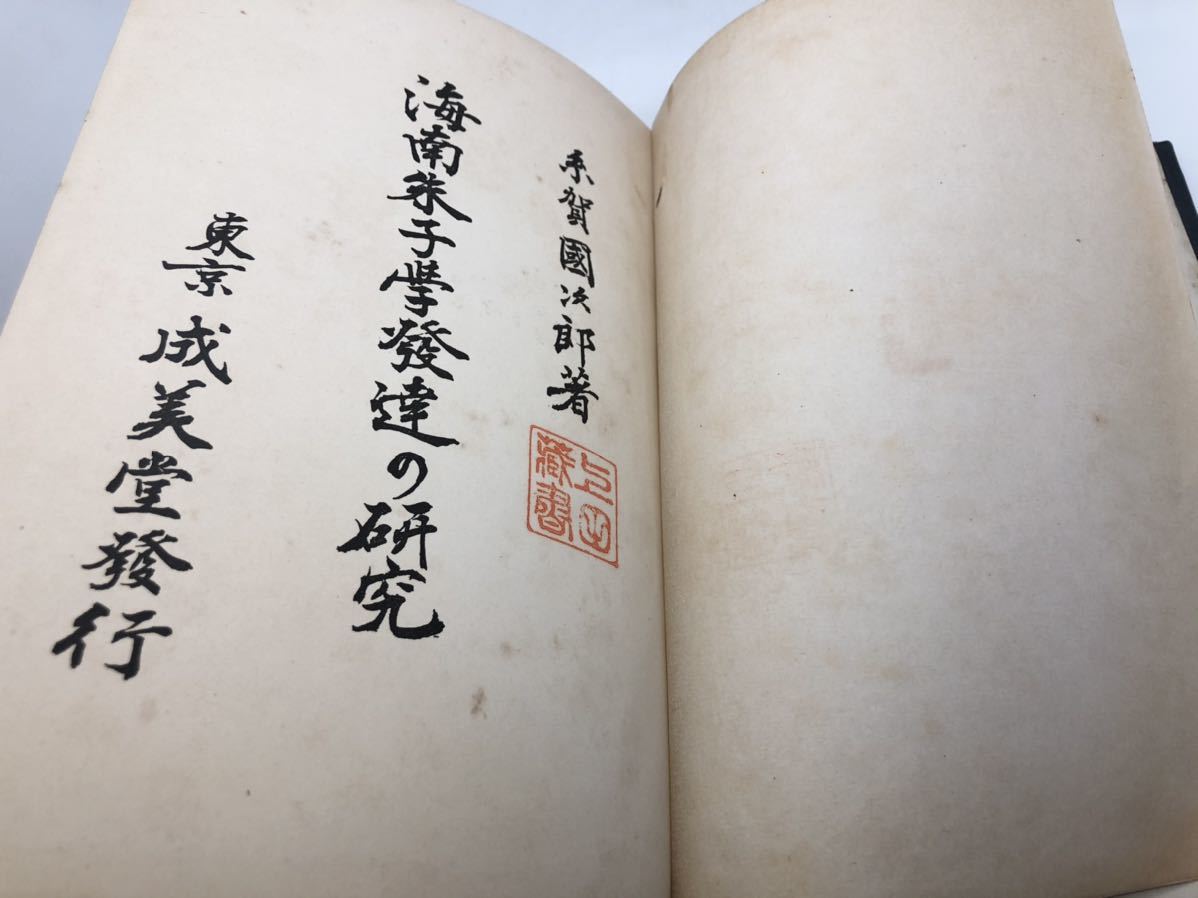 糸賀國次郎著
海南朱子學發達の研究
東京 成美堂發行
上
藏書